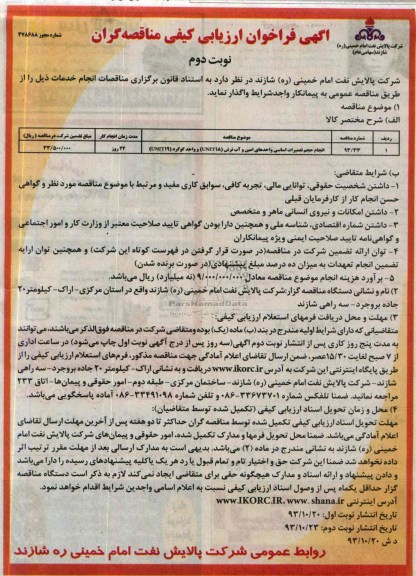 شرکت پالایش نفت امام خمینی (ره)
شازند (سهامی عام)
آگهی فراخوان ارزیابی کیفی مناقصه‌گران
شماره مجوز ۴۷۸۶۸۸
نوبت دوم
شرکت پالایش نفت امام خمینی (ره) شازند در نظر دارد به استناد قانون برگزاری مناقصات انجام خدمات ذیل را از
طریق مناقصه عمومی به پیمانکار واجدشرایط واگذار نماید.
۱) موضوع مناقصه
الف) شرح مختصر کالا
ردیف شماره مناقصه موضوع مناقصه مدت زمان انجام کار مبلغ تضمین شرکت در مناقصه (ریال)
۱ ۹۳/۳۳ انجام حجم تعمیرات اساسی واحدهای آمین و آب ترش (UNIT۱۸) و واحد گوگرد (UNIT۱۹) ۲۲ روز
ب) شرایط متقاضی:
۱- داشتن شخصیت حقوقی، توانایی مالی، تجربه کافی، سوابق کاری مفید و مرتبط با موضوع مناقصه مورد نظر و گواهی
حسن انجام کار از کارفرمایان قبلی
۲- داشتن امکانات و نیروی انسانی ماهر و متخصص
۳- داشتن شماره اقتصادی، شناسه ملی و همچنین دارا بودن گواهی تایید صلاحیت معتبر از وزارت کار و امور اجتماعی
و گواهی‌نامه تایید صلاحیت ایمنی ویژه پیمانکاران
۴- توان ارائه تضمین شرکت در مناقصه(در صورت قرار گرفتن در فهرست کوتاه این شرکت) و همچنین توان ارایه
تضمین انجام تعهدات به میزان ده درصد مبلغ پیشنهادی (در صورت برنده شدن)
۵- برآورد هزینه انجام موضوع مناقصه معادل ۹/۰۰۰/۰۰۰/۰۰۰ (نه میلیارد) ریال می‌باشد.
۲) نام و نشانی دستگاه مناقصه گزار:شرکت پالایش نفت امام خمینی (ره) شازند واقع در استان مرکزی-اراک- کیلومتر۲۰
جاده بروجرد- سه راهی شازند
۳) مهلت و محل دریافت فرمهای استعلام ارزیابی کیفی:
متقاضیانی که دارای شرایط اولیه مندرج در بند (ب) ماده (یک) بوده ومتقاضی شرکت در مناقصه فوق‌الذکر می‌باشند، می‌توانند
به مدت پنج روز کاری پس از انتشار نوبت دوم آگهی(سه روز پس از درج آگهی نوبت اول چاپ می‌شود) در ساعت اداری
از ۷ صبح لغایت ۱۵/۳۰ عصر، ضمن ارسال تقاضای اعلام آمادگی جهت مناقصه مذکور، فرم‌های استعلام ارزیابی کیفی را از
طریق پایگاه اینترنتی این شرکت به آدرس www.ikorc.ir دریافت و به نشانی اراک- کیلومتر ۲۰ جاده بروجرد- سه راهی
شازند- شرکت پالایش نفت امام خمینی (ره) شازند- ساختمان مرکزی- طبقه دوم- امور حقوقی و پیمان‌ها-اتاق ۲۳۳
مراجعه نمایند. ضمنا تلفکس شماره ۳۳۶۷۳۷۰۱-۰۸۶ و تلفن شماره ۳۳۴۹۱۰۹۸-۰۸۶ آماده پاسخگویی می‌باشد.
۴) محل و زمان تحویل اسناد ارزیابی کیفی (تکمیل شده توسط متقاضیان):
مهلت تحویل اسناد ارزیابی کیفی تکمیل شده توسط مناقصه گران حداکثر تا دو هفته پس از آخرین مهلت ارسال تقاضای
اعلام آمادگی می‌باشد. ضمنا محل تحویل فرمها و مدارک تکمیل شده، امور حقوقی و پیمان‌های شرکت پالایش نفت امام
خمینی (ره) شازند به نشانی مندرج در ماده (۲) می‌باشد. بدیهی است به مدارک ارسالی بعد از مهلت مقرر ترتیب اثر
داده نخواهد شد ضمنا این شرکت حق و اختیار تام و تمام قبول یا رد هر یک یا کلیه پیشنهادهای رسیده را دارا می‌باشد
و دادن پیشنهاد و ارائه اسناد و مدارک هیچگونه حقی برای متقاضی ایجاد نمی کند لازم به ذکر است دستگاه مناقصه
گزار حداقل یکماه پس از وصول اسناد ارزیابی کیفی نسبت به اعلام اسامی واجدین شرایط اقدام خواهد نمود.
آدرس اینترنتی www.IKORC.IR، www.shana.ir
تاریخ انتشار نوبت اول: ۹۳/۱۰/۲۰
تاریخ انتشار نوبت دوم: ۹۳/۱۰/۲۳
د ش ۹۳/۱۰/۲۰
روابط عمومی شرکت پالایش نفت امام خمینی ره شازند